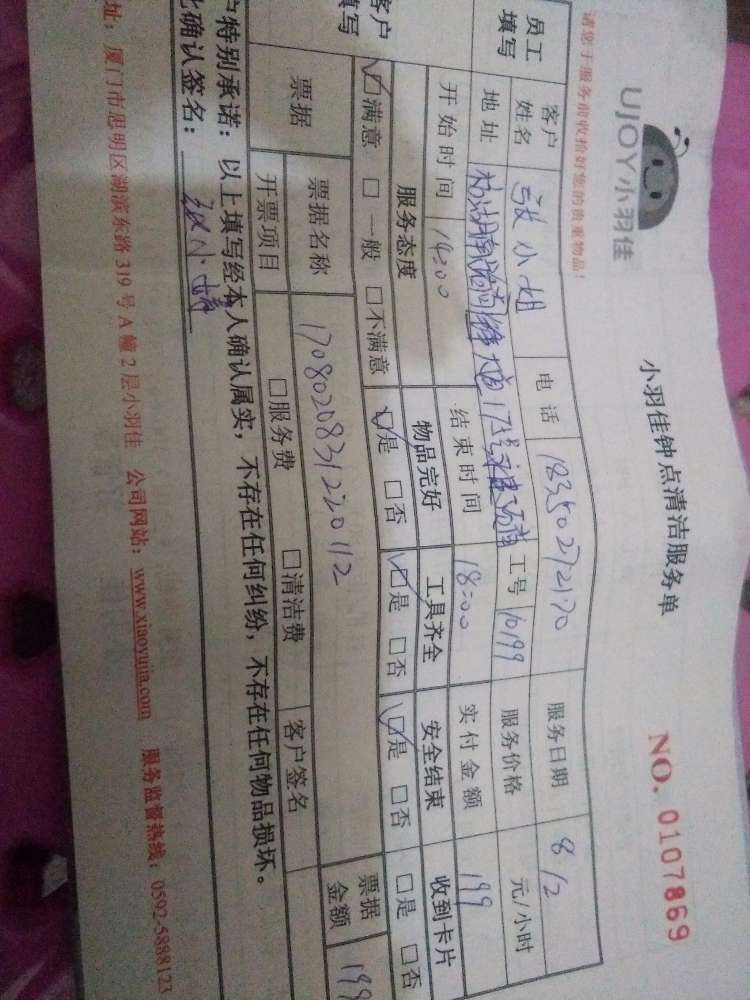 请您于服务前收拾好您的贵重物品！
UJOY小羽佳
小羽佳钟点清洁服务单
NO. 0107869
员工填写 客户姓名 张小姐 电话 18350272170 服务日期 8/2
地址 工号 10199 服务价格 元/小时
开始时间 14:00 结束时间 18:00 实付金额 199
客户填写 服务态度 物品完好 工具齐全 安全结束 收到卡片
☑满意 □一般 □不满意 ☑是 □否 ☑是 □否 ☑是 □否 □是 □否
票据 票据名称 1708020831220112 票据金额 199
开票项目 □服务费 □清洁费 客户签名
户特别承诺：以上填写经本人确认属实，不存在任何纠纷，不存在任何物品损坏。
比确认签名：
址：厦门市思明区湖滨东路319号A幢2层小羽佳 公司网站：www.xiaoyujia.com 服务监督热线：0592-5888123